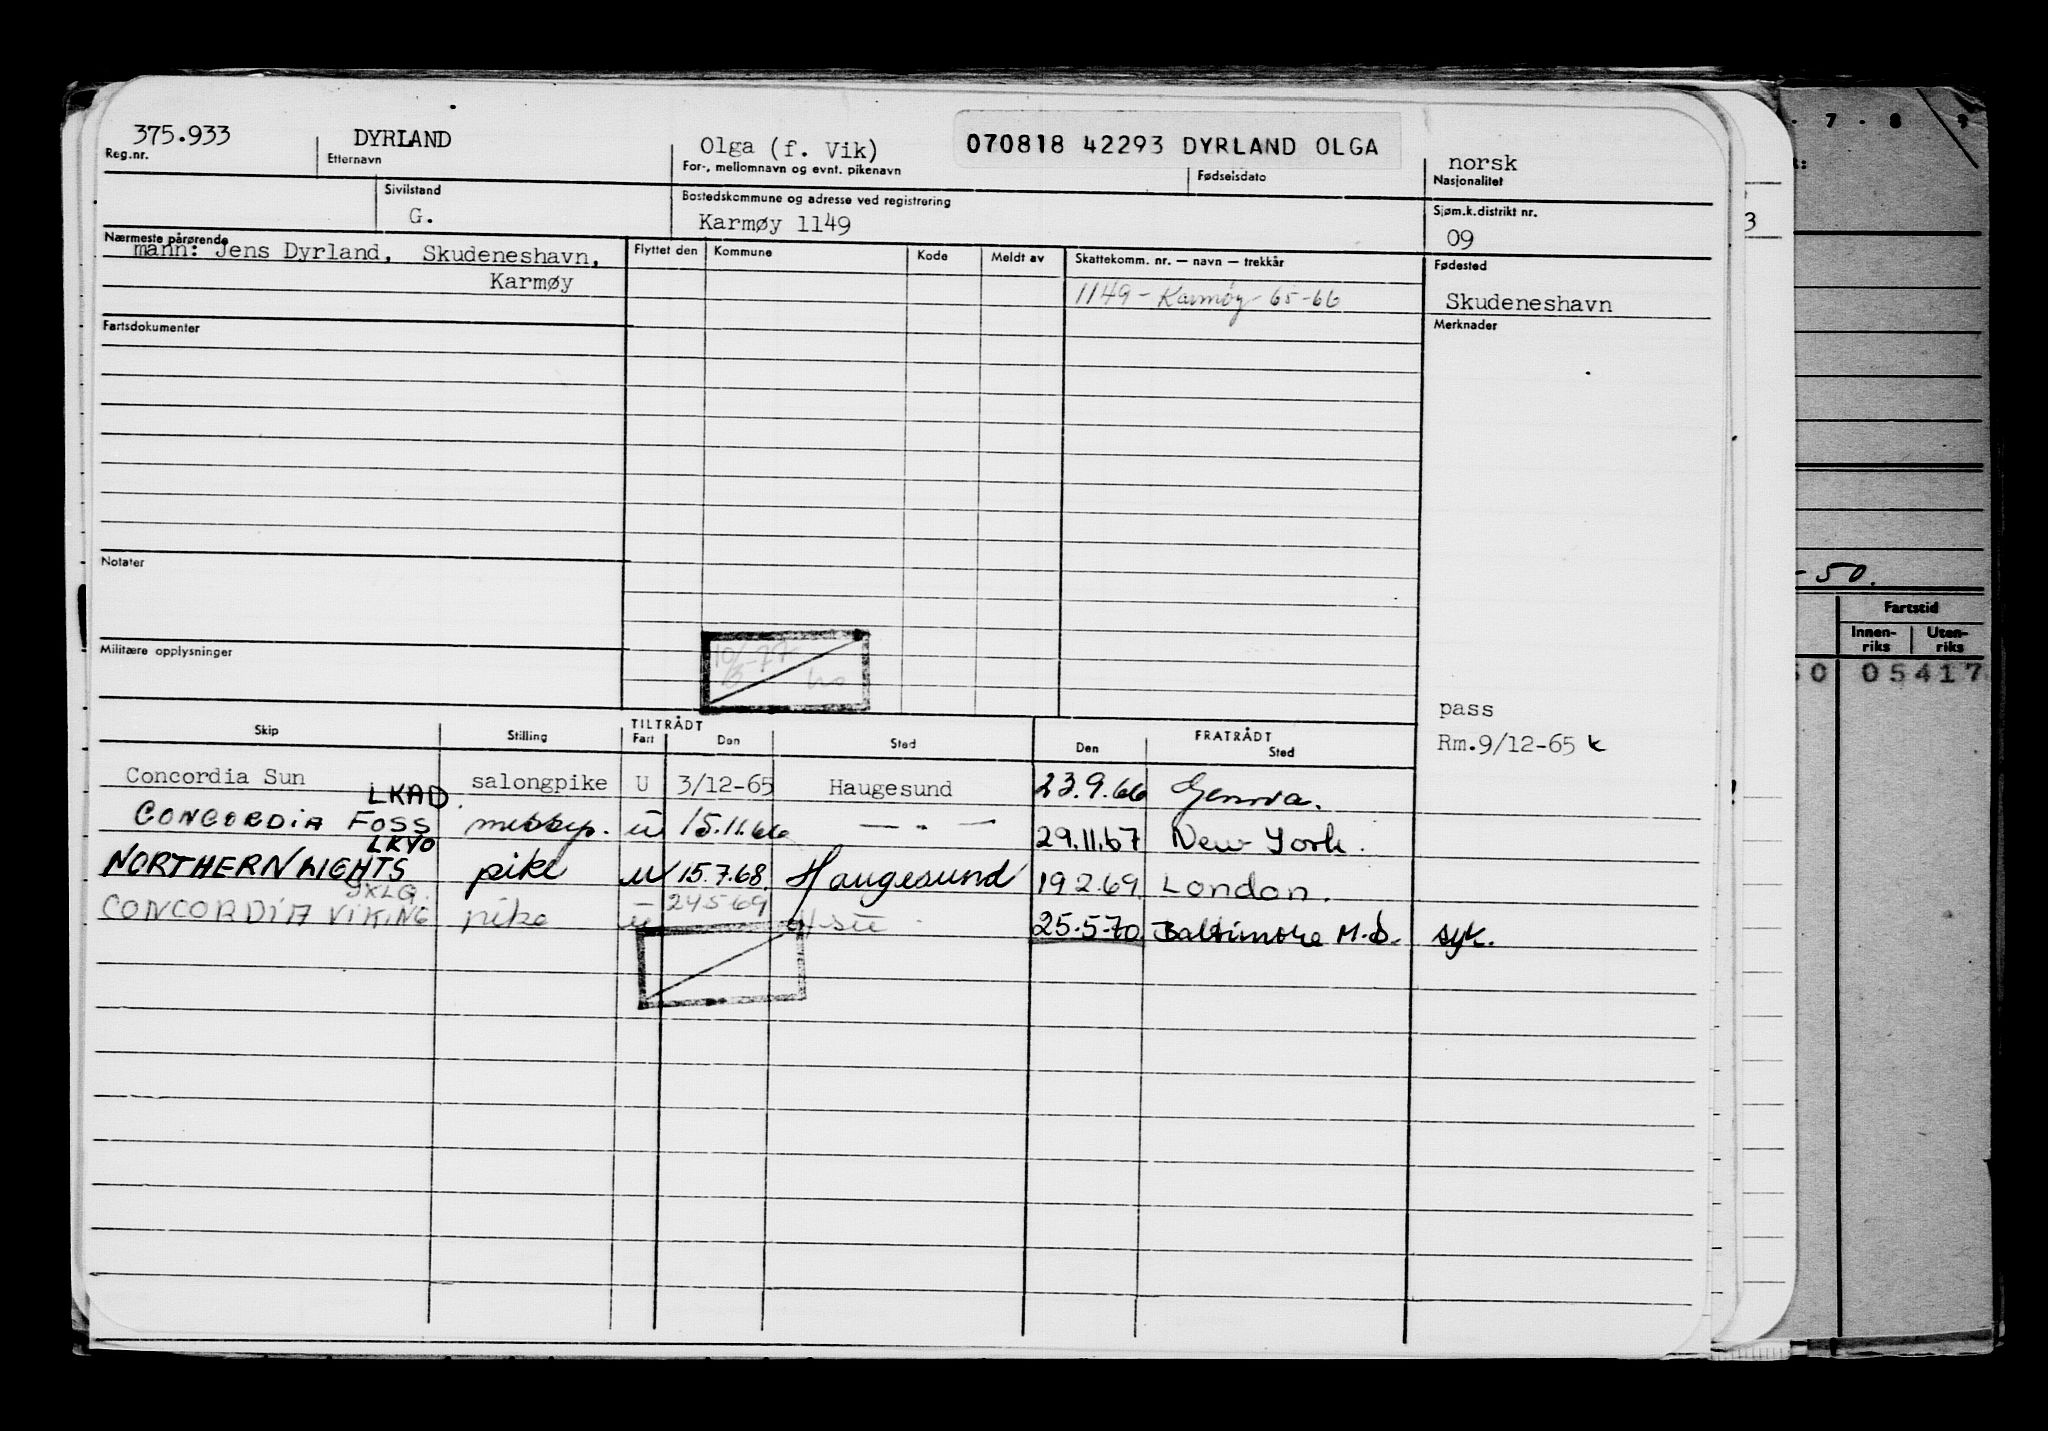 375.933 DYRLAND Olga (f. Vik) 070818 42293 DYRLAND OLGA norsk
Reg.nr. Etternavn For-, mellomnavn og evnt. pikenavn Fødselsdato Nasjonalitet
Sivilstand Bostedskommune og adresse ved registrering Sjøm.k.distrikt nr.
G. Karmøy 1149 09
Nærmeste pårørende Flyttet den Kommune Kode Meldt av Skattekomm. nr. — navn — trekkår Fødested
mann: Jens Dyrland, Skudeneshavn,
Karmøy 1149 - Karmøy - 65-66 Skudeneshavn
Fartsdokumenter Merknader
Notater
Militære opplysninger
pass
Rm.9/12-65
TILTRÅDT FRATRÅDT
Skip Stilling Fart Den Sted Den Sted
Concordia Sun salongpike U 3/12-65 Haugesund 23.9.66 Genova.
LKAD.
CONCORDIA FOSS messep. u 15.11.66 — " — 29.11.67 New York.
LKYO
NORTHERN LIGHTS pike u 15.7.68. Haugesund 19.2.69. London.
JXLG.
CONCORDIA VIKING pike u 24.5.69 25.5.70 Baltimore M.D. syk.
7 - 8
3
- 50.
Fartstid
Innen-riks Uten-riks
50 05417